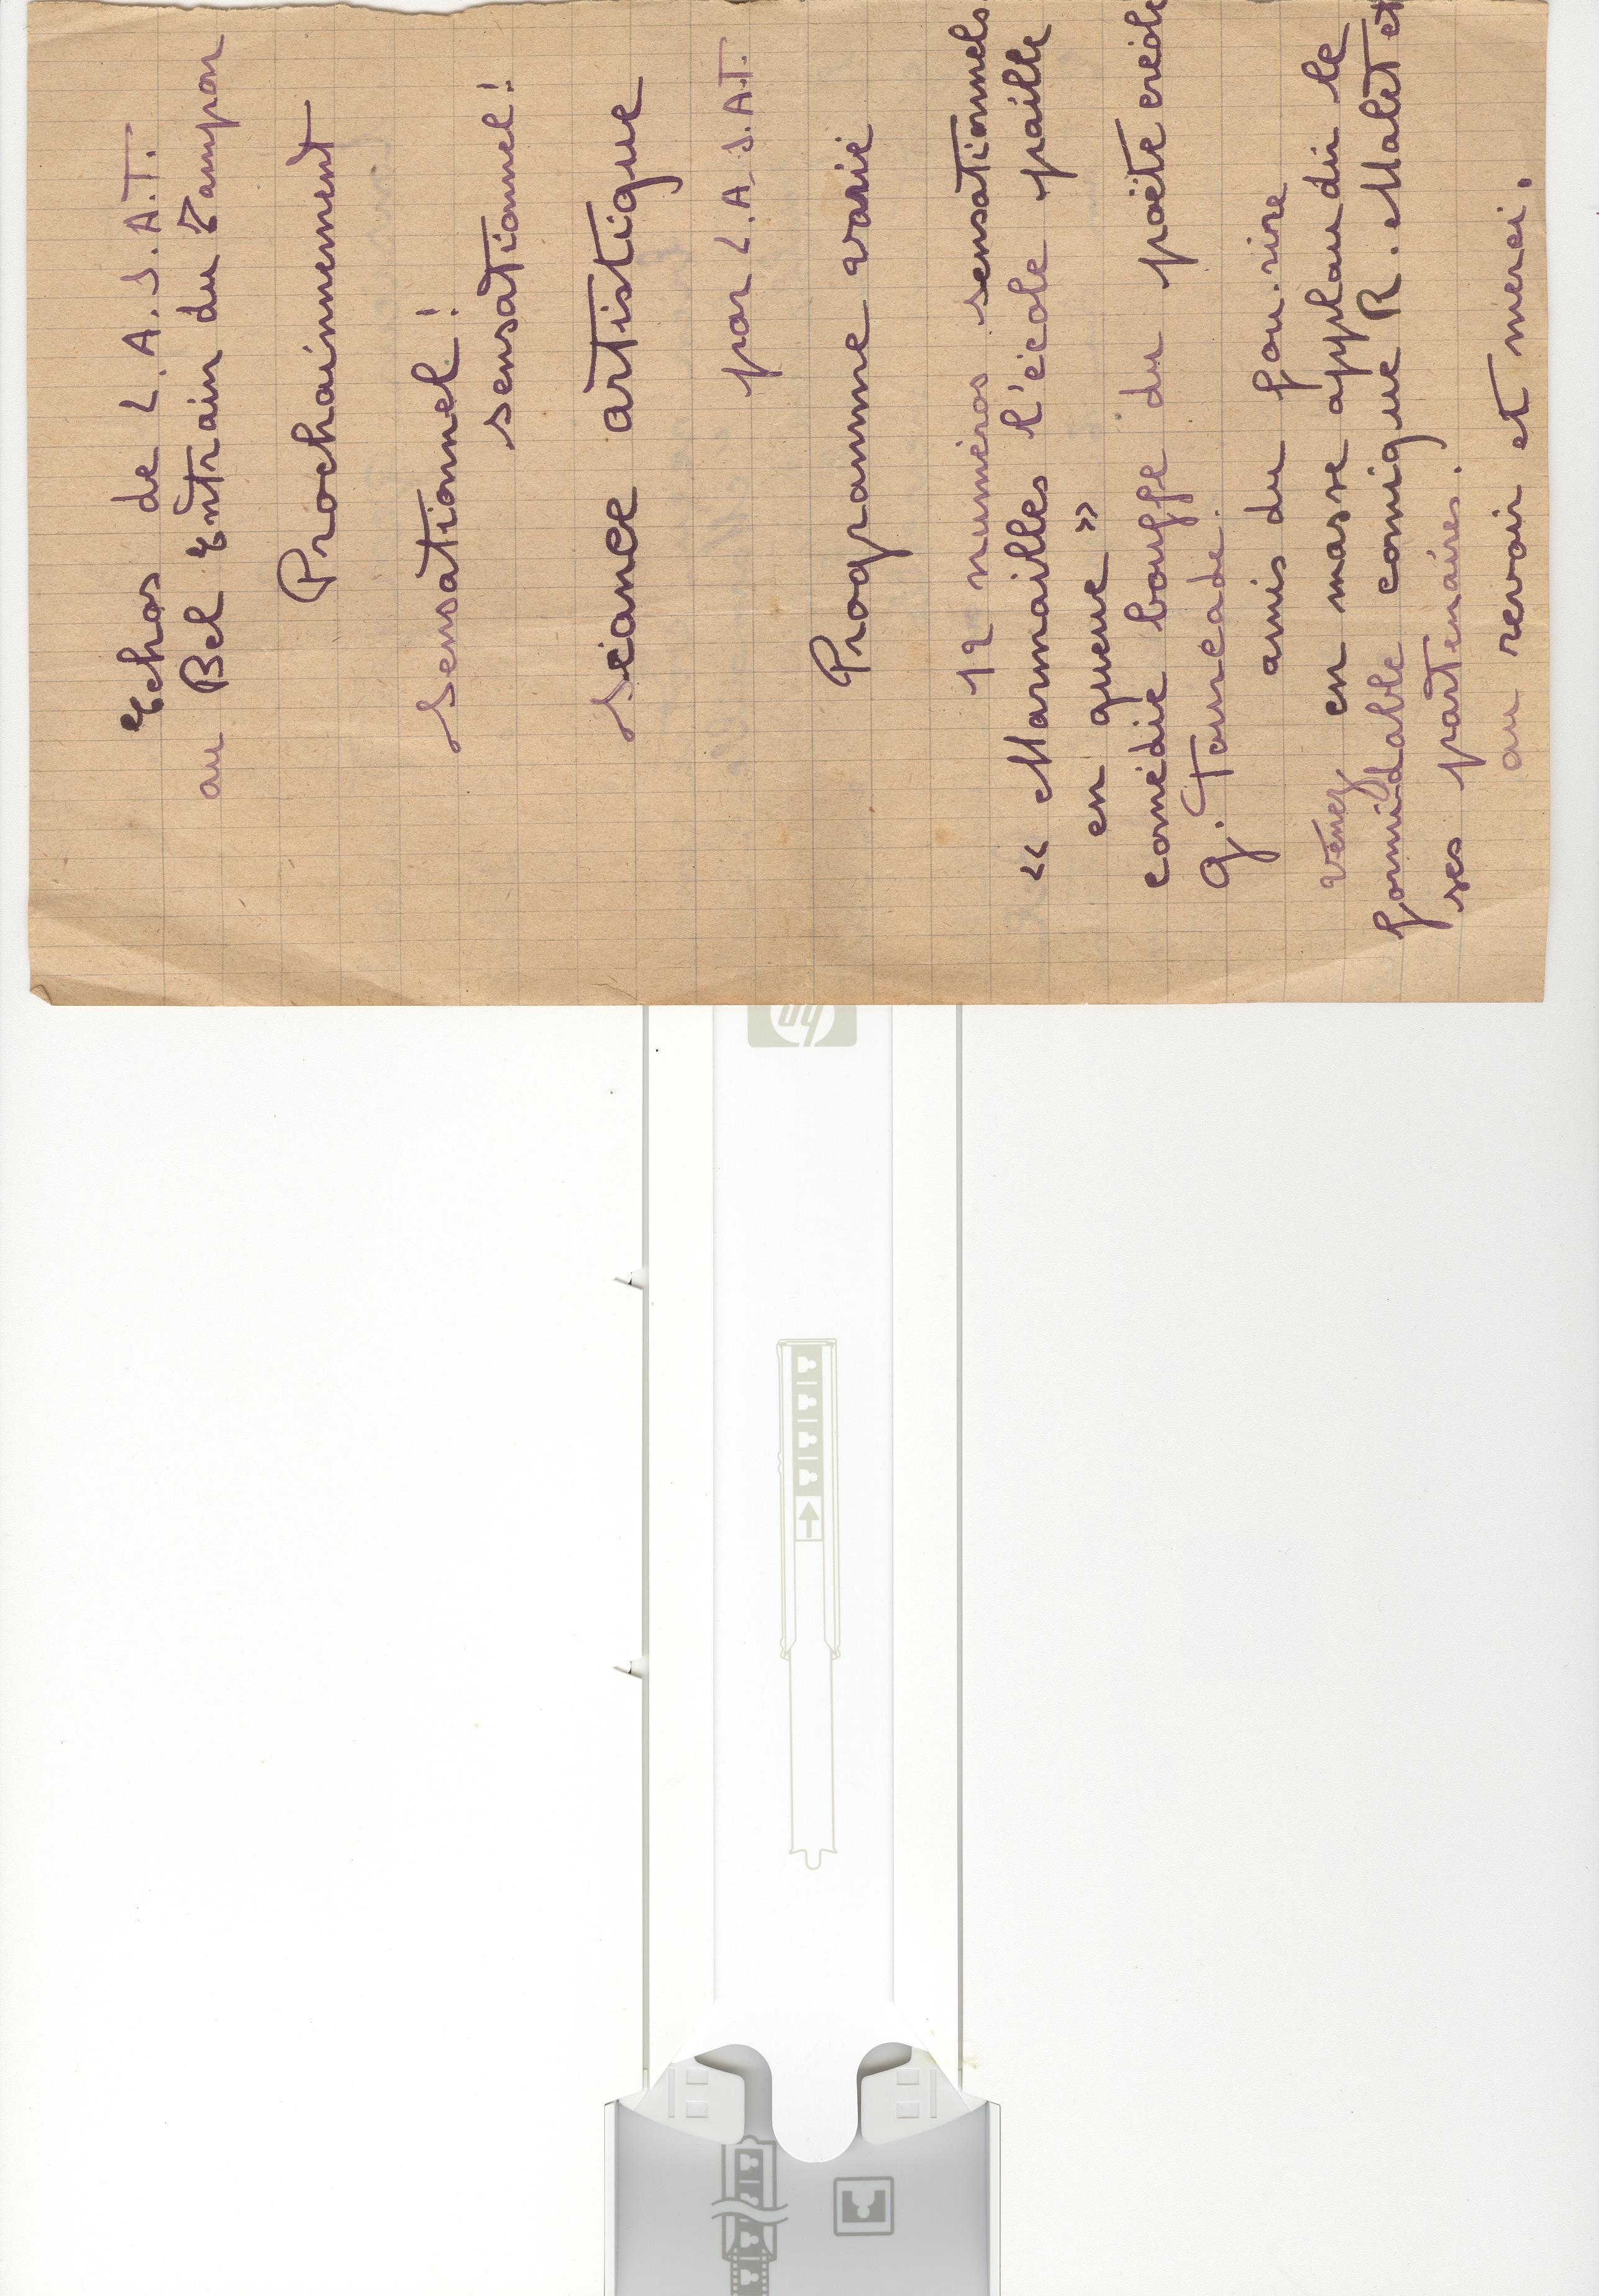 Echos de L.A.S.A.T.
au Bel Entrain du Tampon
Prochainnement
Sensationnel!
sensationnel!
séance artistique
par L.A.S.A.T.
Programme varié
12 numéros sensationnels.
« Marmailles l'école paille
en queue »
comédie bouffe du poëte créole
G. Fourcade.
amis du fou-rire
venez en masse applaudir le
formidable comique R. Malet et
ses partenaires.
au revoir et merci.
hp